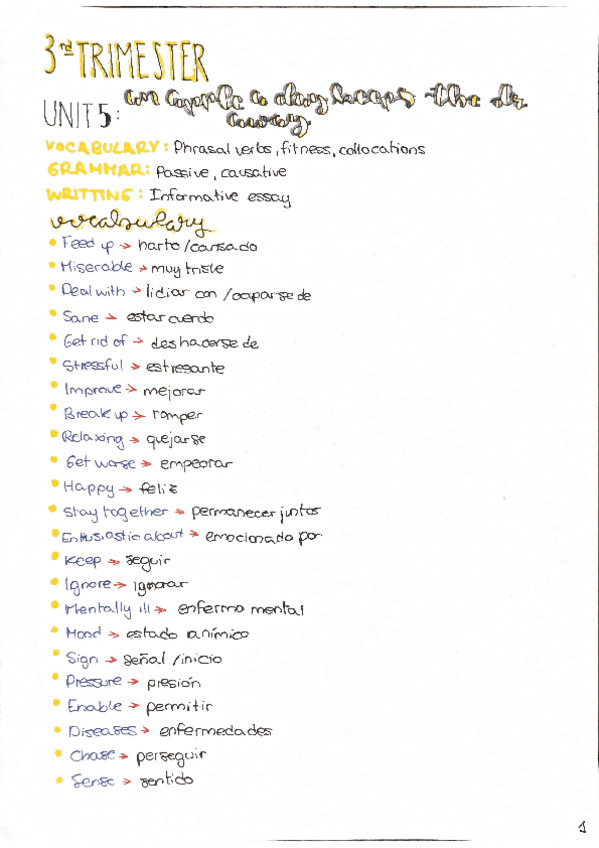 3rd TRIMESTER
UNIT 5: an apple a day keeps the dr.
away.
VOCABULARY: Phrasal verbs, fitness, collocations
GRAMMAR: Passive, causative
WRITTING: Informative essay
vocabulary
• Feed up → harto/cansado
• Miserable → muy triste
• Deal with → lidiar con /ocuparse de
• Sane → estar cuerdo
• Get rid of → deshacerse de
• Stressful → estresante
• Improve → mejorar
• Break up → romper
• Relaxing → quejarse
• Get worse → empeorar
• Happy → feliz
• Stay together → permanecer juntos
• Enthusiastic about → emocionado por
• Keep → seguir
• Ignore → ignorar
• Mentally ill → enfermo mental
• Mood → estado anímico
• Sign → señal /inicio
• Pressure → presión
• Enable → permitir
• Diseases → enfermedades
• Chase → perseguir
• Sense → sentido
1